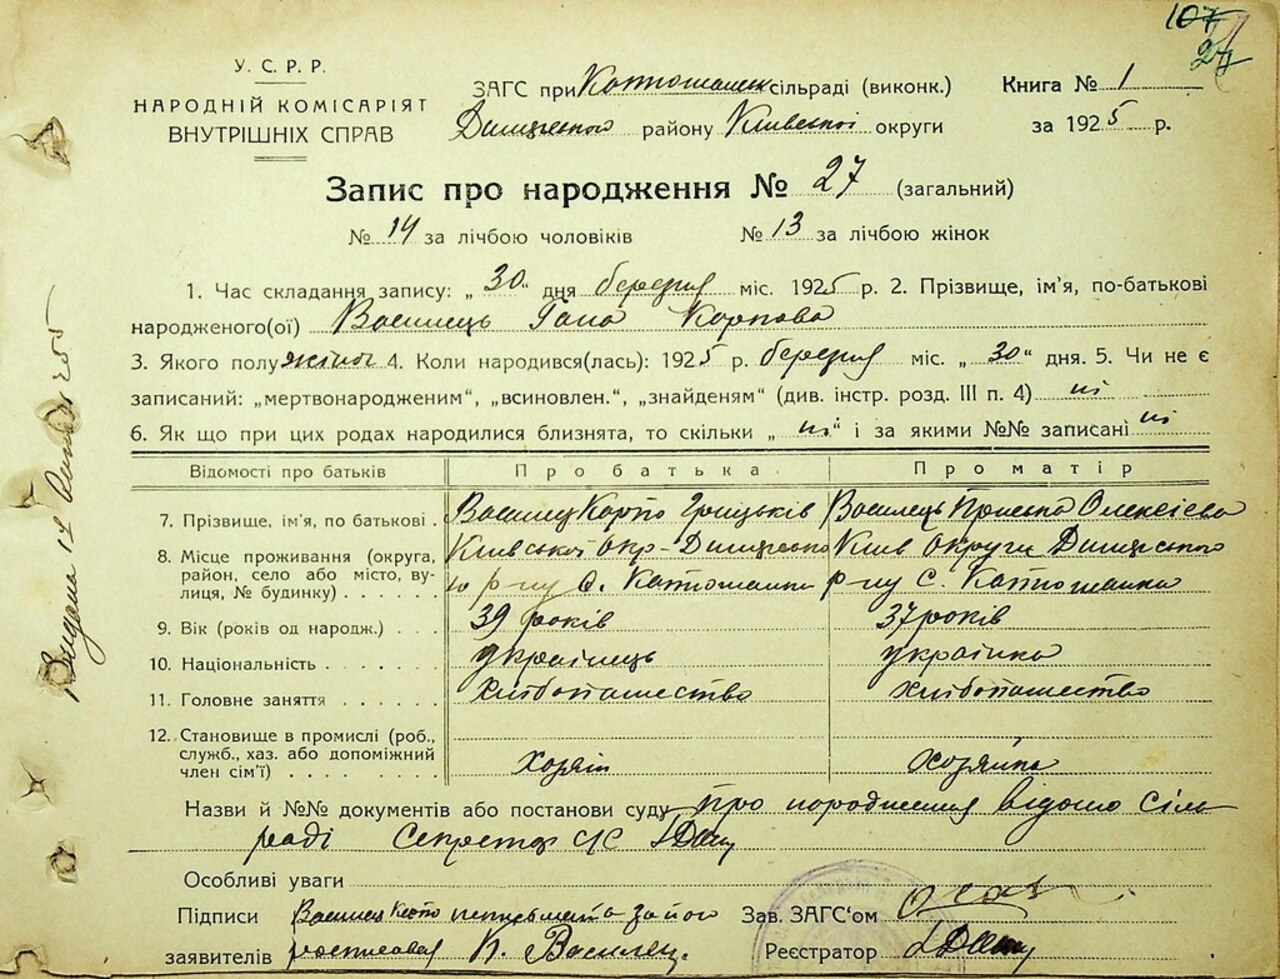 107
27
У. С. Р. Р.
НАРОДНІЙ КОМІСАРІЯТ
ВНУТРІШНІХ СПРАВ
ЗАГС при сільраді (виконк.)
Димерського району Київської округи
Книга № 1
за 1925 р.
Запис про народження № 27 (загальний)
№ 14 за лічбою чоловіків № 13 за лічбою жінок
1. Час складання запису: „ 30 “ дня березня міс. 1925 р. 2. Прізвище, ім'я, по-батькові
народженого(ої) Василець Гапа Корпова
3. Якого полу жіноч 4. Коли народився(лась): 1925 р. березня міс. „ 30 “ дня. 5. Чи не є
записаний: „мертвонародженим“, „всиновлен.“, „знайденям“ (див. інстр. розд. III п. 4) ні
6. Як що при цих родах народилися близнята, то скільки „ ні “ і за якими №№ записані ні
Відомості про батьків Про батька. Про матір
7. Прізвище, ім'я, по батькові . Василец Карпо Грицьків Василець Приська Олексієва
8. Місце проживання (округа, Київської окр- Димерсько Київ округи Димерського
район, село або місто, ву- го р-ну С. Катюжанка р-ну С. Катюжанка
лиця, № будинку) . . . . . .
9. Вік (років од народж.) . . . 39 років 37 років
10. Національність . . . . . . . українець українка
11. Головне заняття . . . . . . хлібопашество хлібопашество
12. Становище в промислі (роб.,
служб., хаз. або допоміжний
член сім'ї) . . . . . . . . . хозяїн хозяйка
Назви й №№ документів або постанови суду про народження відомо сіль
раді Секретар С/С
Особливі уваги
Підписи Василец Карпо неписьмений за його Зав. ЗАГС‘ом
заявителів росписався К. Василец. Реєстратор
Видана